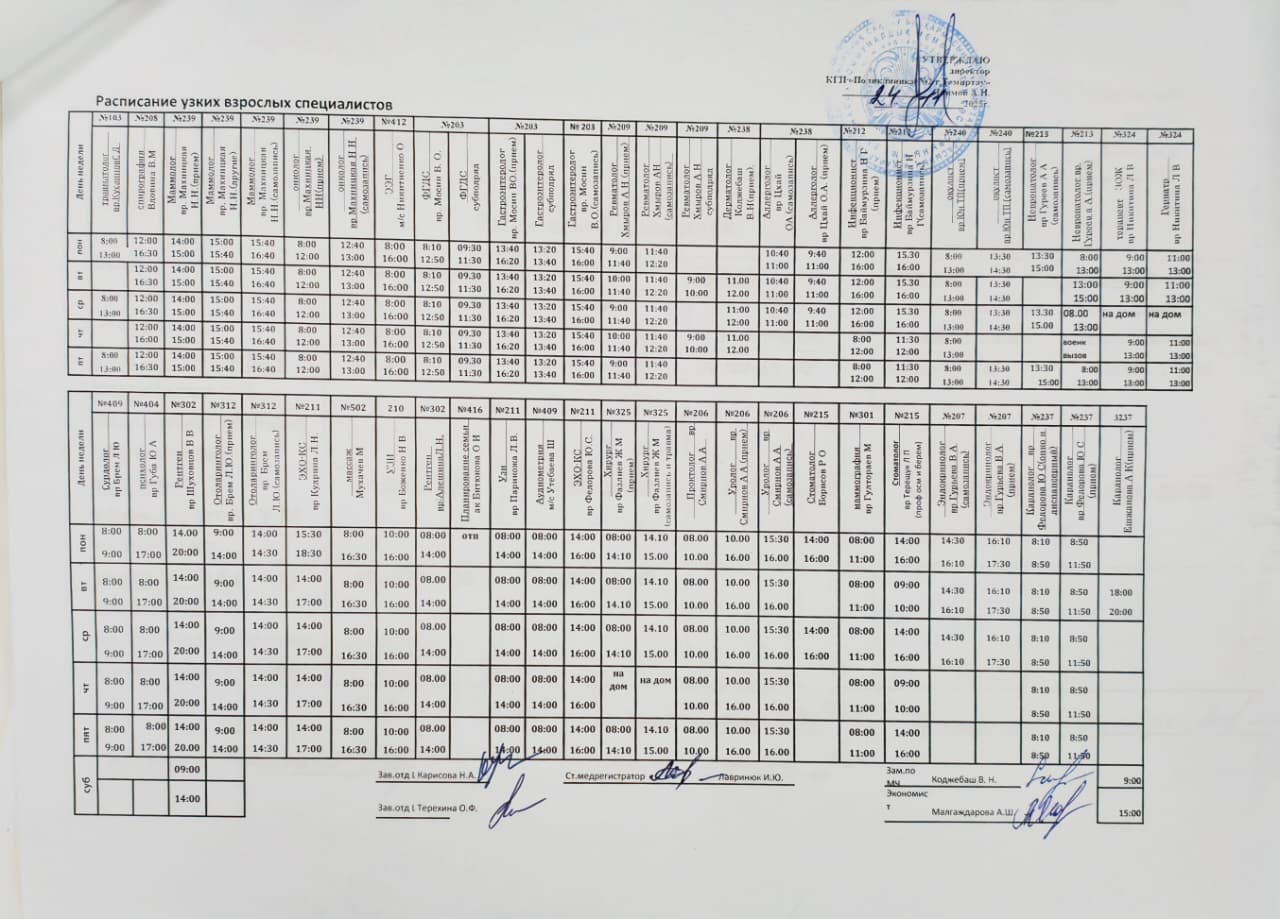 УТВЕРЖДАЮ
директор
24 11
Расписание узких взрослых специалистов
День недели
№103 №208 №239 №239 №239 №239 №239 №412 №203 №203 № 203 №209 №209 №209 №238 №238 №212 №240 №240 №213 №213 №324 №324
травматолог
спирография Вловина В.М
Маммолог вр. Махницкая Н Н (прием)
Маммолог вр. Махницкая Н Н (другие)
Маммолог вр. Махницкая Н Н (самозапись)
онколог вр.Махницкая. НН(прием)
онколог вр.Махницкая Н.Н. (самозапись)
ЭЭГ м/с Никитиенко О
ФГДС вр. Мосин В. О.
ФГДС субподряд
Гастроэнтеролог вр. Мосин ВО.(прием)
Гастроэнтеролог субподряд
Гастроэнтеролог вр. Мосин В.О.(самозапись)
Ревматолог Хмыров А.Н (прием)
Ревматолог Хмыров АН (самозапись)
Ревматолог Хмыров А.Н субподряд
Дерматолог Коджебаш В.Н(прием).
Аллерголог вр Цхай ОА (самозапись)
Аллерголог вр Цхай О.А. (прием)
Инфекционист вр Баймурзина Н Г (прием)
Инфекционист вр Баймурзина Н Г(самозапись)
окулист вр.Юн.ТЦ(прием)
окулист вр.Юн.ТЦ(самозапись)
вр Гуреев А А (самозапись)
Гуреев а А.(прием)
терапевт ЗОЖ вр Никитина Л В
Гериатр вр Никитина Л В
пон 8:00 12:00 14:00 15:00 15:40 8:00 12:40 8:00 8:10 09:30 13:40 13:20 15:40 9:00 11:40 10:40 9:40 12:00 15.30 8:00 13:30 13:30 8:00 9:00 11:00
13:00 16:30 15:00 15:40 16:40 12:00 13:00 16:00 12:50 11:30 16:20 13:40 16:00 11:40 12:20 11:00 11:00 16:00 16:00 13:00 14:30 15:00 13:00 13:00 13:00
вт 12:00 14:00 15:00 15:40 8:00 12:40 8:00 8:10 09.30 13:40 13:20 15:40 10:00 11:40 9:00 11.00 10:40 9:40 12:00 15.30 8:00 13:30 13:00 9:00 11:00
16:30 15:00 15:40 16:40 12:00 13:00 16:00 12:50 11:30 16:20 13:40 16:00 11:40 12:20 10:00 12.00 11:00 11:00 16:00 16:00 13:00 14:30 15:00 13:00 13:00
ср 8:00 12:00 14:00 15:00 15:40 8:00 12:40 8:00 8:10 09.30 13:40 13:20 15:40 9:00 11:40 11:00 10:40 9:40 12:00 15.30 8:00 13:30 13.30 08.00 на дом на дом
13:00 16:30 15:00 15:40 16:40 12:00 13:00 16:00 12:50 11:30 16:20 13:40 16:00 11:40 12:20 12:00 11:00 11:00 16:00 16:00 13:00 14:30 15.00 13:00
чт 12:00 14:00 15:00 15:40 8:00 12:40 8:00 8:10 09.30 13:40 13:20 15:40 10:00 11:40 9:00 11.00 8:00 11:30 8:00 13:30 военк 9:00 11:00
16:00 15:00 15:40 16:40 12:00 13:00 16:00 12:50 11:30 16:20 13:40 16:00 11:40 12:20 10:00 12.00 12:00 12:00 13:00 вызов 13:00 13:00
пт 8:00 12:00 14:00 15:00 15:40 8:00 12:40 8:00 8:10 09.30 13:40 13:20 15:40 9:00 11:40 8:00 11.30 8:00 13:30 13:30 8:00 9:00 11:00
13:00 16:30 15:00 15:40 16:40 12:00 13:00 16:00 12:50 11:30 16:20 13:40 16:00 11:40 12:20 12:00 12:00 13:00 14:30 15:00 13:00 13:00 13:00
День недели
№409 №404 №302 №312 №312 №211 №502 210 №302 №416 №211 №409 №211 №325 №325 №206 №206 №206 №215 №301 №215 №207 №207 №237 №237 3237
Сурдолог вр Брем л ю
психолог вр Губа Ю А
Рентген вр Шуховцов В В
Отоларинголог вр. Брем Л.Ю.(прием)
Отоларинголог вр. Брем Л.Ю (самозапись)
ЭХО-КС вр Кудрина Л Н
массаж Мухачев М
УЗИ вр Боженко Н В
Рентген
Планирование семьи ак Битюнова О И
Узи вр Париножа Л.В.
Аудиометрия м/с Утебаева Ш
ЭХО-КС вр Федорова Ю С.
Хирург вр Фазлиев Ж М (прием)
Хирург вр Фазлиев Ж М (самозапись и травма)
Проктолог вр Смирнов А.А.
Уролог вр Смирнов А А (прием)
Уролог вр Смирнов А.А. (самозапись)
Стоматолог Борисов Р О
маммография вр Гултораев М
Стоматолог вр Терещук Л П (проф осм и берем)
Эндокринолог вр.Гурьева В А (самозапись)
Эндокринолог вр.Гурьева В.А (прием)
Кардиолог вр Федорова Ю С(онко и диспансерный)
Кардиолог вр.Федорова Ю С (прием)
Кардиолог Ешжанова А К(прием)
пон 8:00 8:00 14.00 9:00 14:00 15:30 8:00 10:00 08:00 отп 08:00 08:00 14:00 08:00 14.10 08.00 10.00 15:30 14:00 08:00 14:00 14:30 16:10 8:10 8:50
9:00 17:00 20:00 14:00 14:30 18:30 16:30 16:00 14:00 14:00 14:00 16:00 14:10 15.00 10.00 16.00 16.00 16:00 11:00 16:00 16:10 17:30 8:50 11:50
вт 8:00 8:00 14:00 9:00 14:00 14:00 8:00 10:00 08.00 08:00 08:00 14:00 08:00 14.10 08.00 10.00 15:30 08:00 09:00 14:30 16:10 8:10 8:50 18:00
9:00 17:00 20:00 14:00 14:30 17:00 16:30 16:00 14:00 14:00 14:00 16:00 14.10 15.00 10.00 16.00 16.00 11:00 10:00 16:10 17:30 8:50 11:50 20:00
ср 8:00 8:00 14:00 9:00 14:00 14:00 8:00 10:00 08.00 08:00 08:00 14:00 08:00 14.10 08.00 10.00 15:30 14:00 08:00 14:00 14:30 16:10 8:10 8:50
9:00 17:00 20:00 14:00 14:30 17:00 16:30 16:00 14:00 14:00 14:00 16:00 14:10 15.00 10.00 16.00 16.00 16:00 11:00 16:00 16:10 17:30 8:50 11:50
чт 8:00 8:00 14:00 9:00 14:00 14:00 8:00 10:00 08.00 08:00 08:00 14:00 на дом на дом 08.00 10.00 15:30 08:00 09:00 8:10 8:50
9:00 17:00 20:00 14:00 14:30 17:00 16:30 16:00 14:00 14:00 14:00 16:00 10.00 16.00 16.00 11:00 10:00 8:50 11:50
пят 8:00 8:00 14:00 9:00 14:00 14:00 8:00 10:00 08.00 08:00 08:00 14:00 08:00 14.10 08.00 10.00 15:30 08:00 14:00 8:10 8:50
9:00 17:00 20.00 14:00 14:30 17:00 16:30 16:00 14:00 14:00 14:00 16:00 14:10 15.00 10.00 16.00 16.00 11:00 16:00 8:50 11:50
суб 09:00 9:00
14:00 15:00
Зав.отд I. Карисова Н.А. Ст.медрегистратор Лавринюк И.Ю. Зам.по МЧ Коджебаш В. Н.
Зав.отд I. Терехина О.Ф. Экономист Малгаждарова А.Ш.